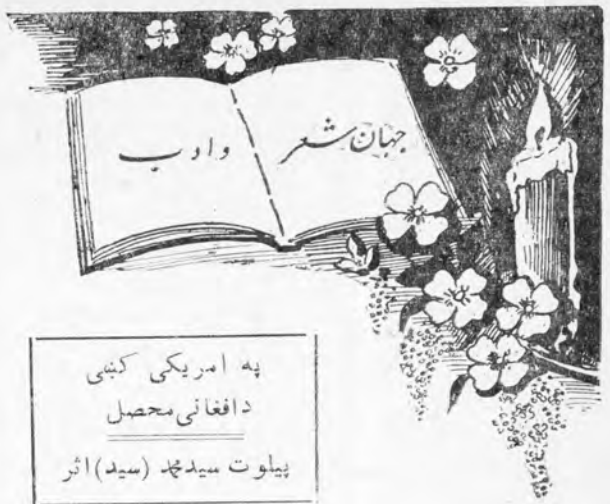 جهان شعر
وادب
په امریکی کښی
دافغانی محصل
پیلوت سیدمحمد (سید) اثر